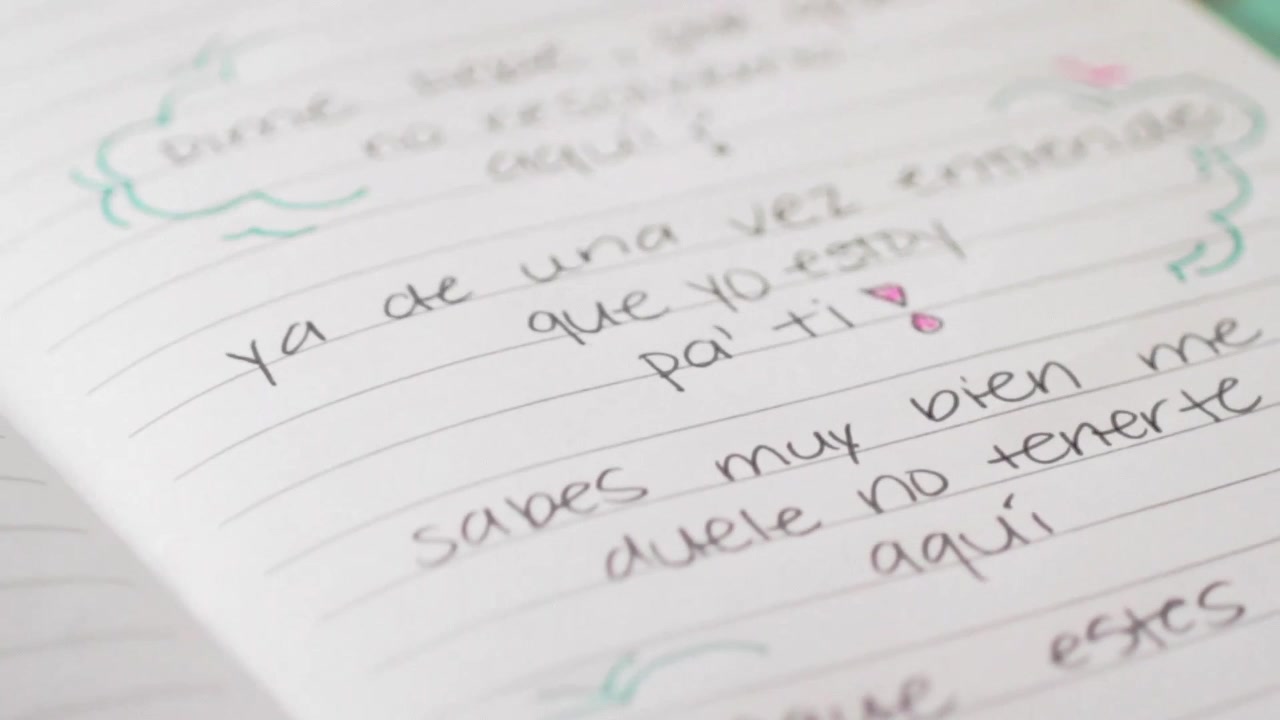 Dime
no
aquí?
ya de una vez entiende
que yo estoy
pa' ti
sabes muy bien me
duele no tenerte
aquí
que estes